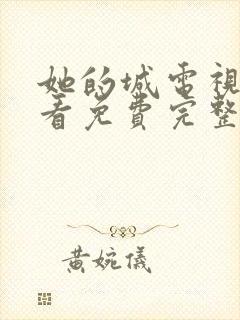 她的城電視
看免費完整
黃婉儀